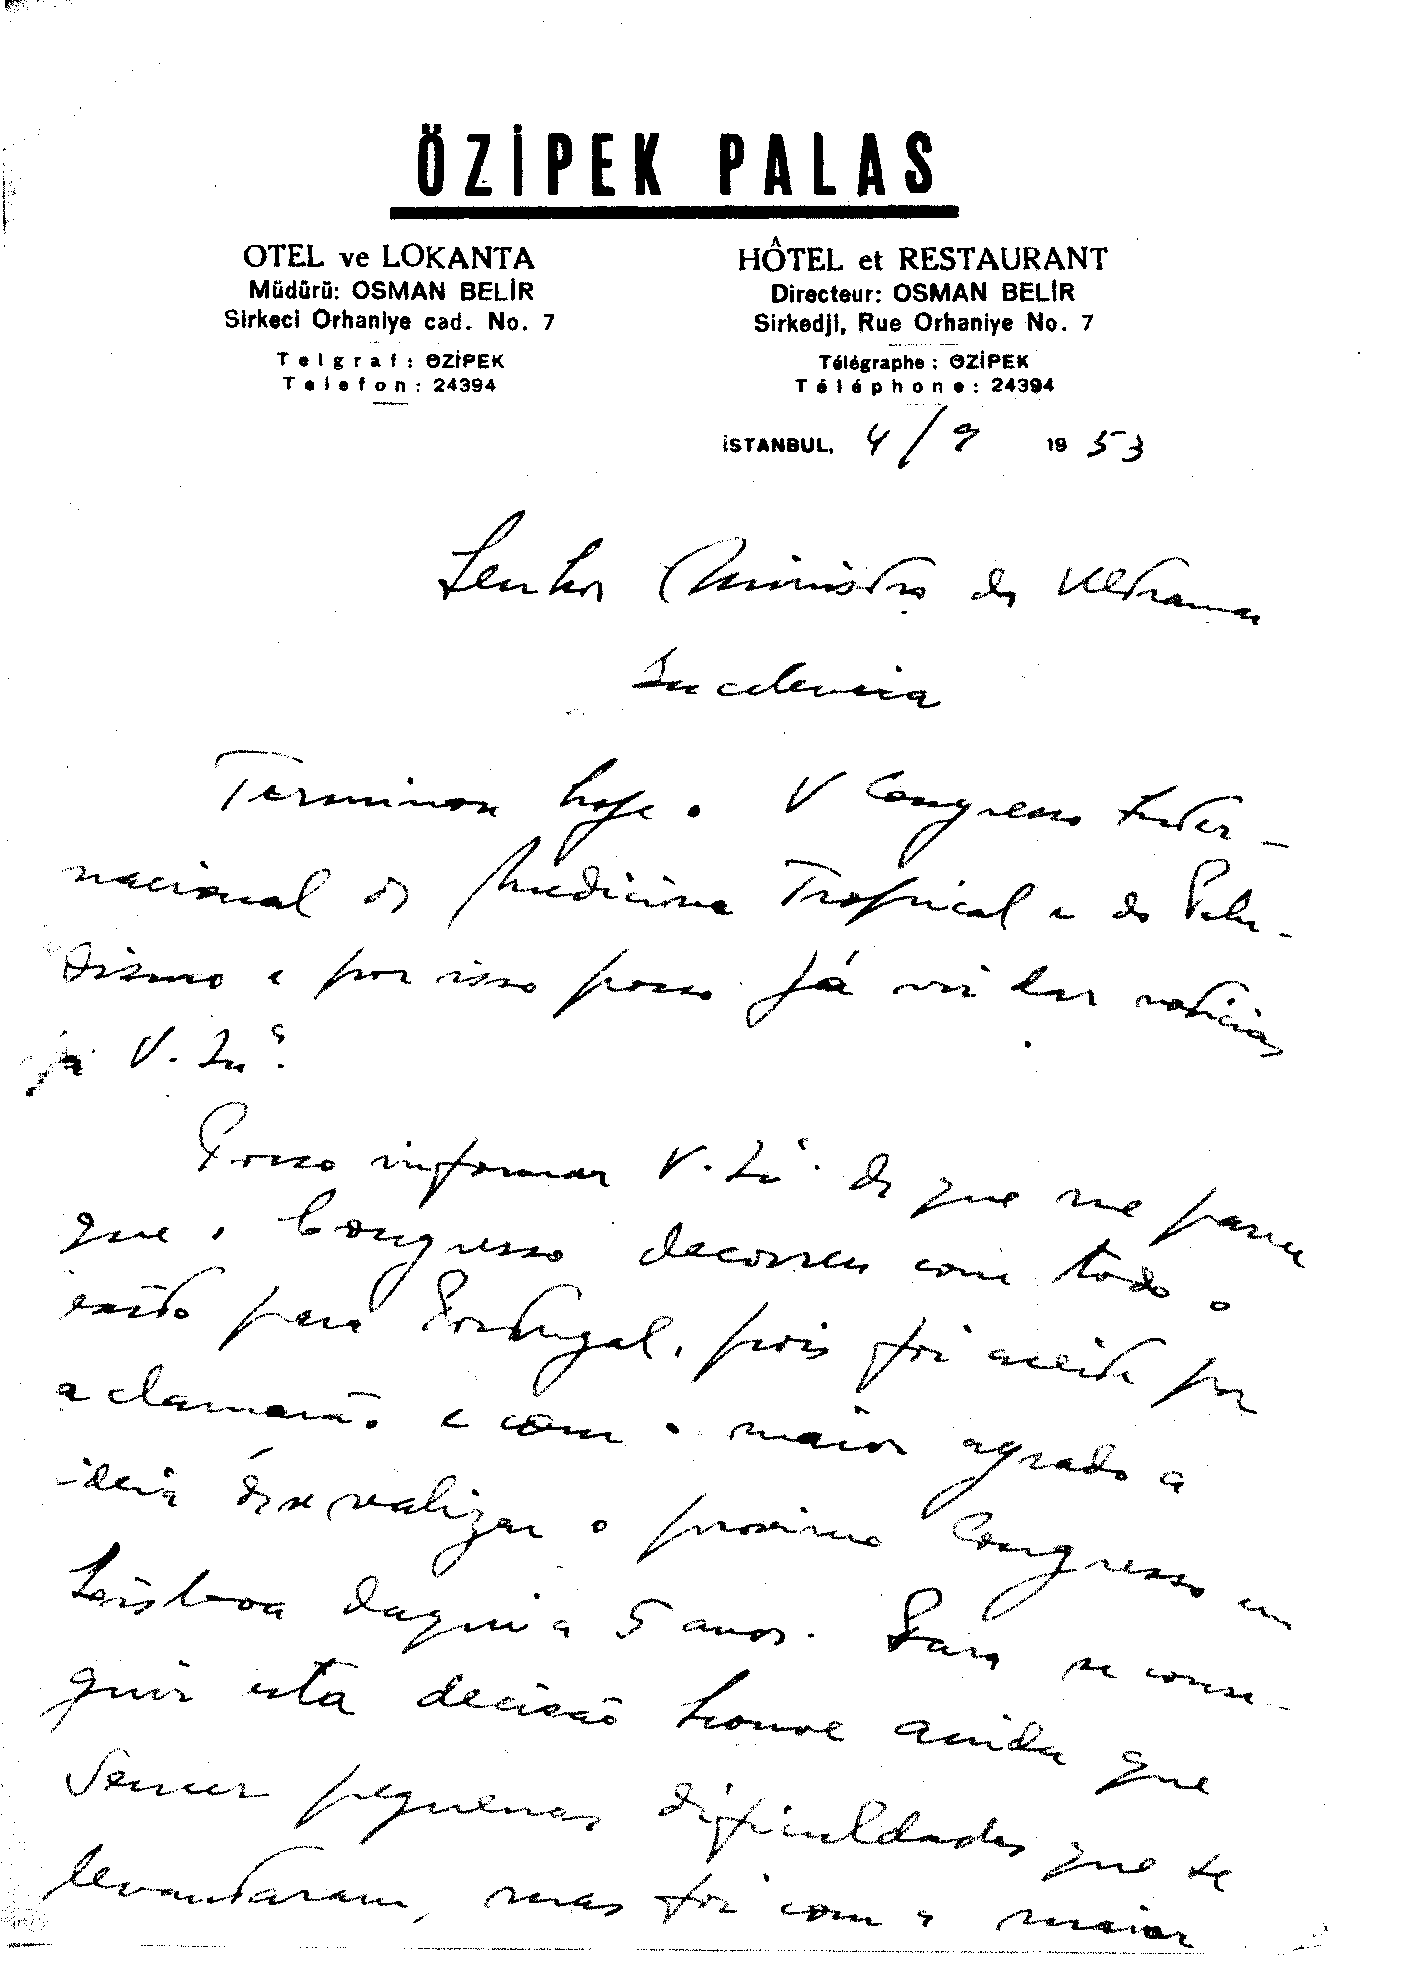 ÖZİPEK PALAS
OTEL ve LOKANTA
Müdürü: OSMAN BELİR
Sirkeci Orhaniye cad. No. 7
Telgraf: ÖZİPEK
Telefon: 24394
HÔTEL et RESTAURANT
Directeur: OSMAN BELİR
Sirkedji, Rue Orhaniye No. 7
Télégraphe: ÖZİPEK
Téléphone: 24394
İSTANBUL, 4/9 1953
Senhor Ministro do Ultramar
Excelencia
Terminou hoje o V Congresso Inter-
nacional de Medicina Tropical e do Palu-
dismo e por isso posso já vir dar noticias
a V. Exª.
Posso informar V. Exª. de que me parece
que o Congresso decorreu com todo o
exito para Portugal, pois foi aceite por
aclamação e com o maior agrado a
ideia de se realizar o proximo Congresso em
Lisboa daqui a 5 anos. Para se conse-
guir esta decisão houve ainda que
vencer pequenas dificuldades que se
levantaram, mas foi com o maior